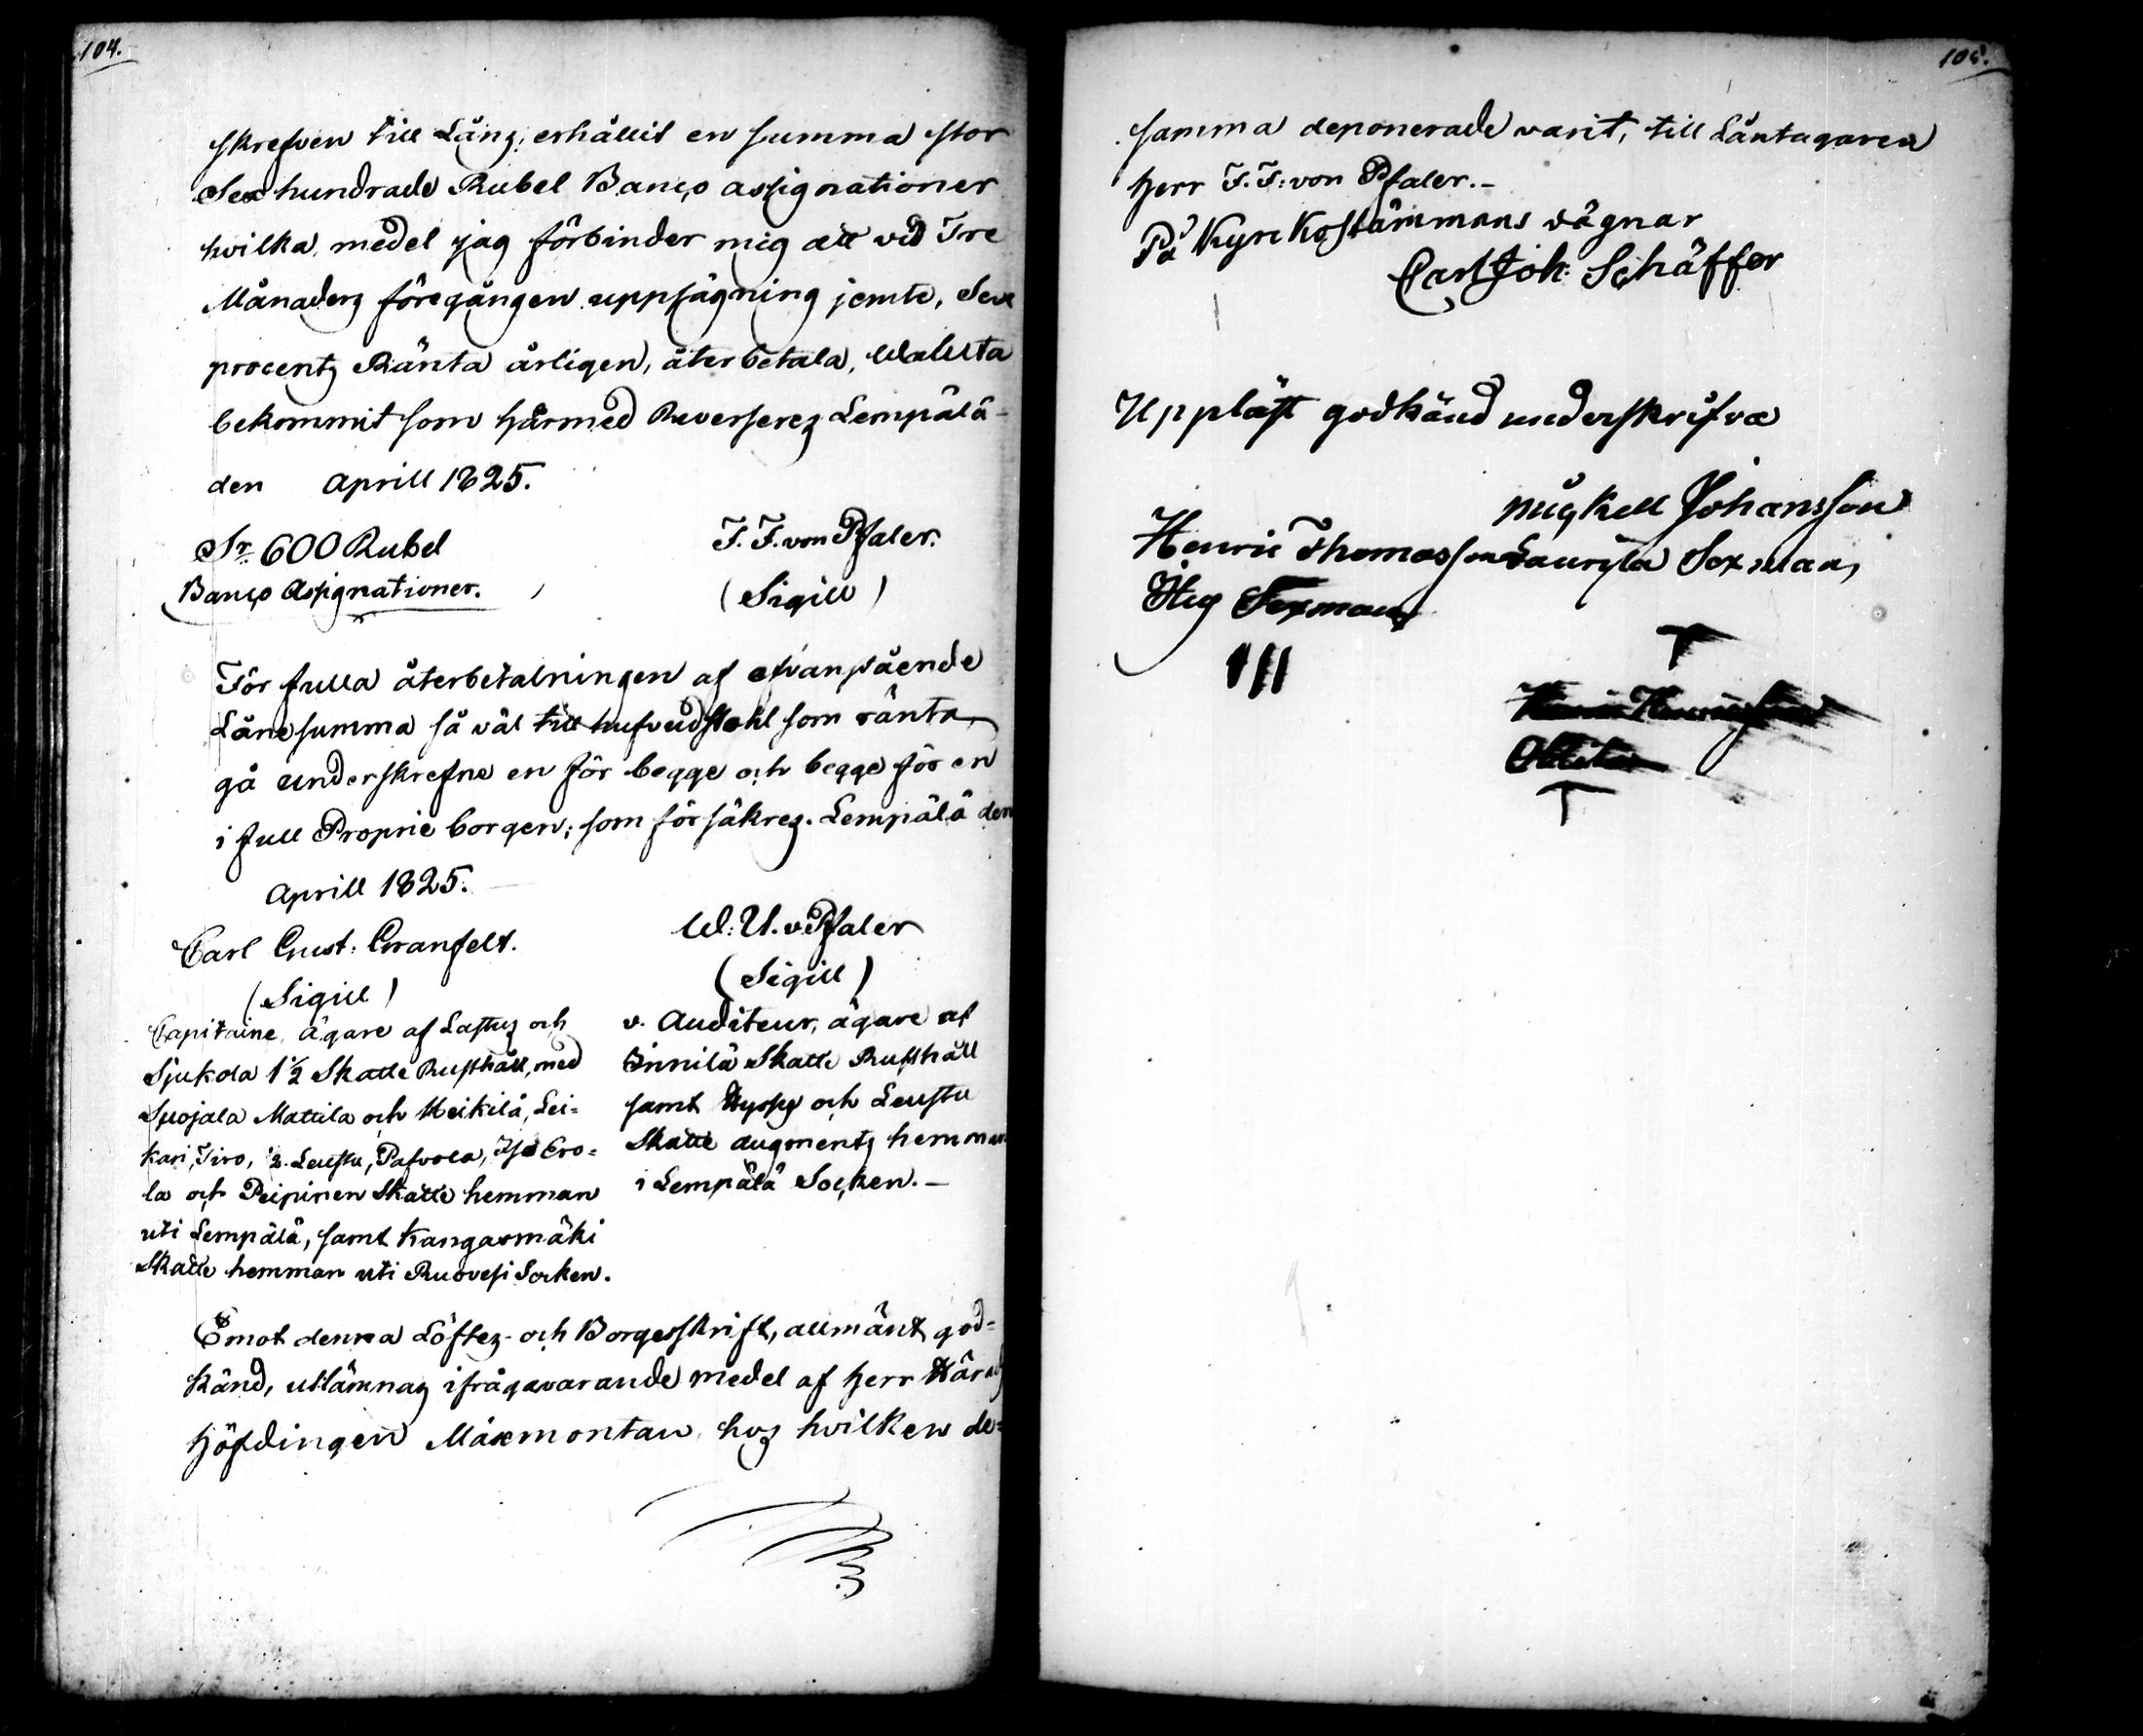 104.
skrefven till Låns, erhållit en summa stor
Sex hundrade Rubel Banco assignationer
hvilka medel jag förbinder mig att vid Tre
Månaders föregången uppsägning jemte, Sex
procents Ränta årligen, återbetala, Waluta
bekommit som härmed Reverseres Lempälä
den Aprill 1825.
Sr 600 Rubel
Banco Assignationer.
F. F. von Pfaler.
(Sigill)
För fulla återbetalningen af ofvanstående
Lånesumma så väl till hufvudstohl som ränta,
gå underskrefne en för begge och begge för en
i full Proprie borgen; som försäkres. Lempälä den
Aprill 1825.
Carl Gust: Granfelt.
(Sigill)
Capitaine, ägare af Lastus och
Sjukola 1 1/2 Skatte Rusthåll, med
Suojala Mattila och Heikilä, Lei=
kari, Tiro, 1/2 Leustu, Pafvola, Ero=
la och Peipinen Skatte hemman
uti Lempälä, samt Kangasmäki
Skatte hemman uti Ruovesi Socken.
W: U. v. Pfaler
(Sigill)
v. Auditeur, ägare af
Innilä Skatte Rusthåll
samt och Leustu
Skatte augments hemman
i Lempälä Socken.—
Emot denna Löftes- och Borgesskrift, allmänt god=
känd, utlämnas ifrågavarande medel af Herr Härads
Höfdingen Maxmontan, hos hvilken de=
105.
samma deponerade varit, till Låntagaren
Herr F. F: von Pfaler.—
På Kyrkostämmans vägnar
Carl Joh: Schäffer
Uppläst godkänd underskrifva
Michell Johansson
Henric Thomasson Laurila Sexman,
Sexman